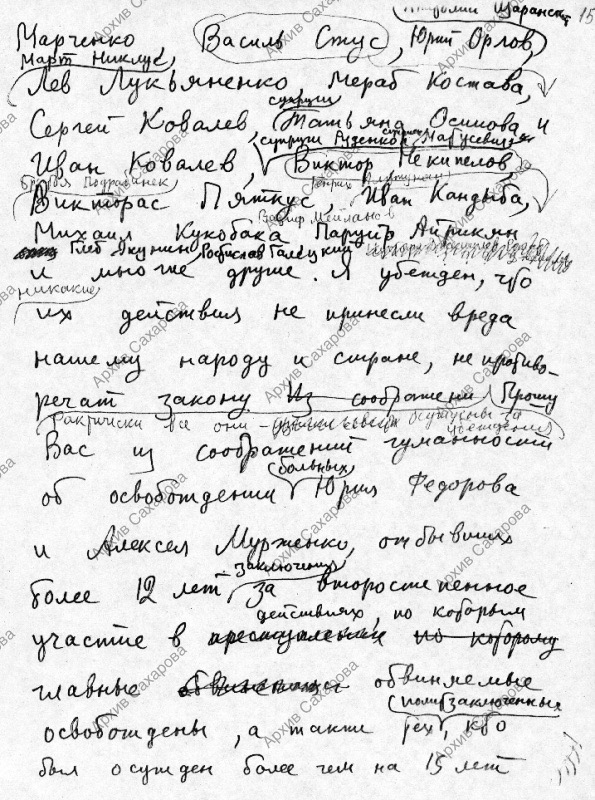 Анатолий Щаранский 15
Марченко Василь Стус, Юрий Орлов,
Март Никлус,
Лев Лукьяненко, Мераб Костава,
супруги
Сергей Ковалев Татьяна Осипова и
супруги Руденко, супруги Матусевич
Иван Ковалев, Виктор Некипелов,
братья Подрабинек
Викторас Пяткус, Иван Кандыба,
Вазиф Мейланов
Михаил Кукобака Паруйр Айрикян
Глеб Якунин Ростислав Галецкий
и многие другие. Я убежден, что
никакие
их действия не принесли вреда
нашему народу и стране, не противо-
речат закону Из соображени Прошу
Фактически все они - осуждены за
убеждения
Вас из соображений гуманности
больных
об освобождении Юрия Федорова
и Алексея Мурженко, отбывших
заключения
более 12 лет за второстепенное
действиях, по которым
участие в преступлении по которому
главные обвиняемые
политзаключенных
освобождены, а также тех, кто
был осужден более чем на 15 лет
Архив Сахарова